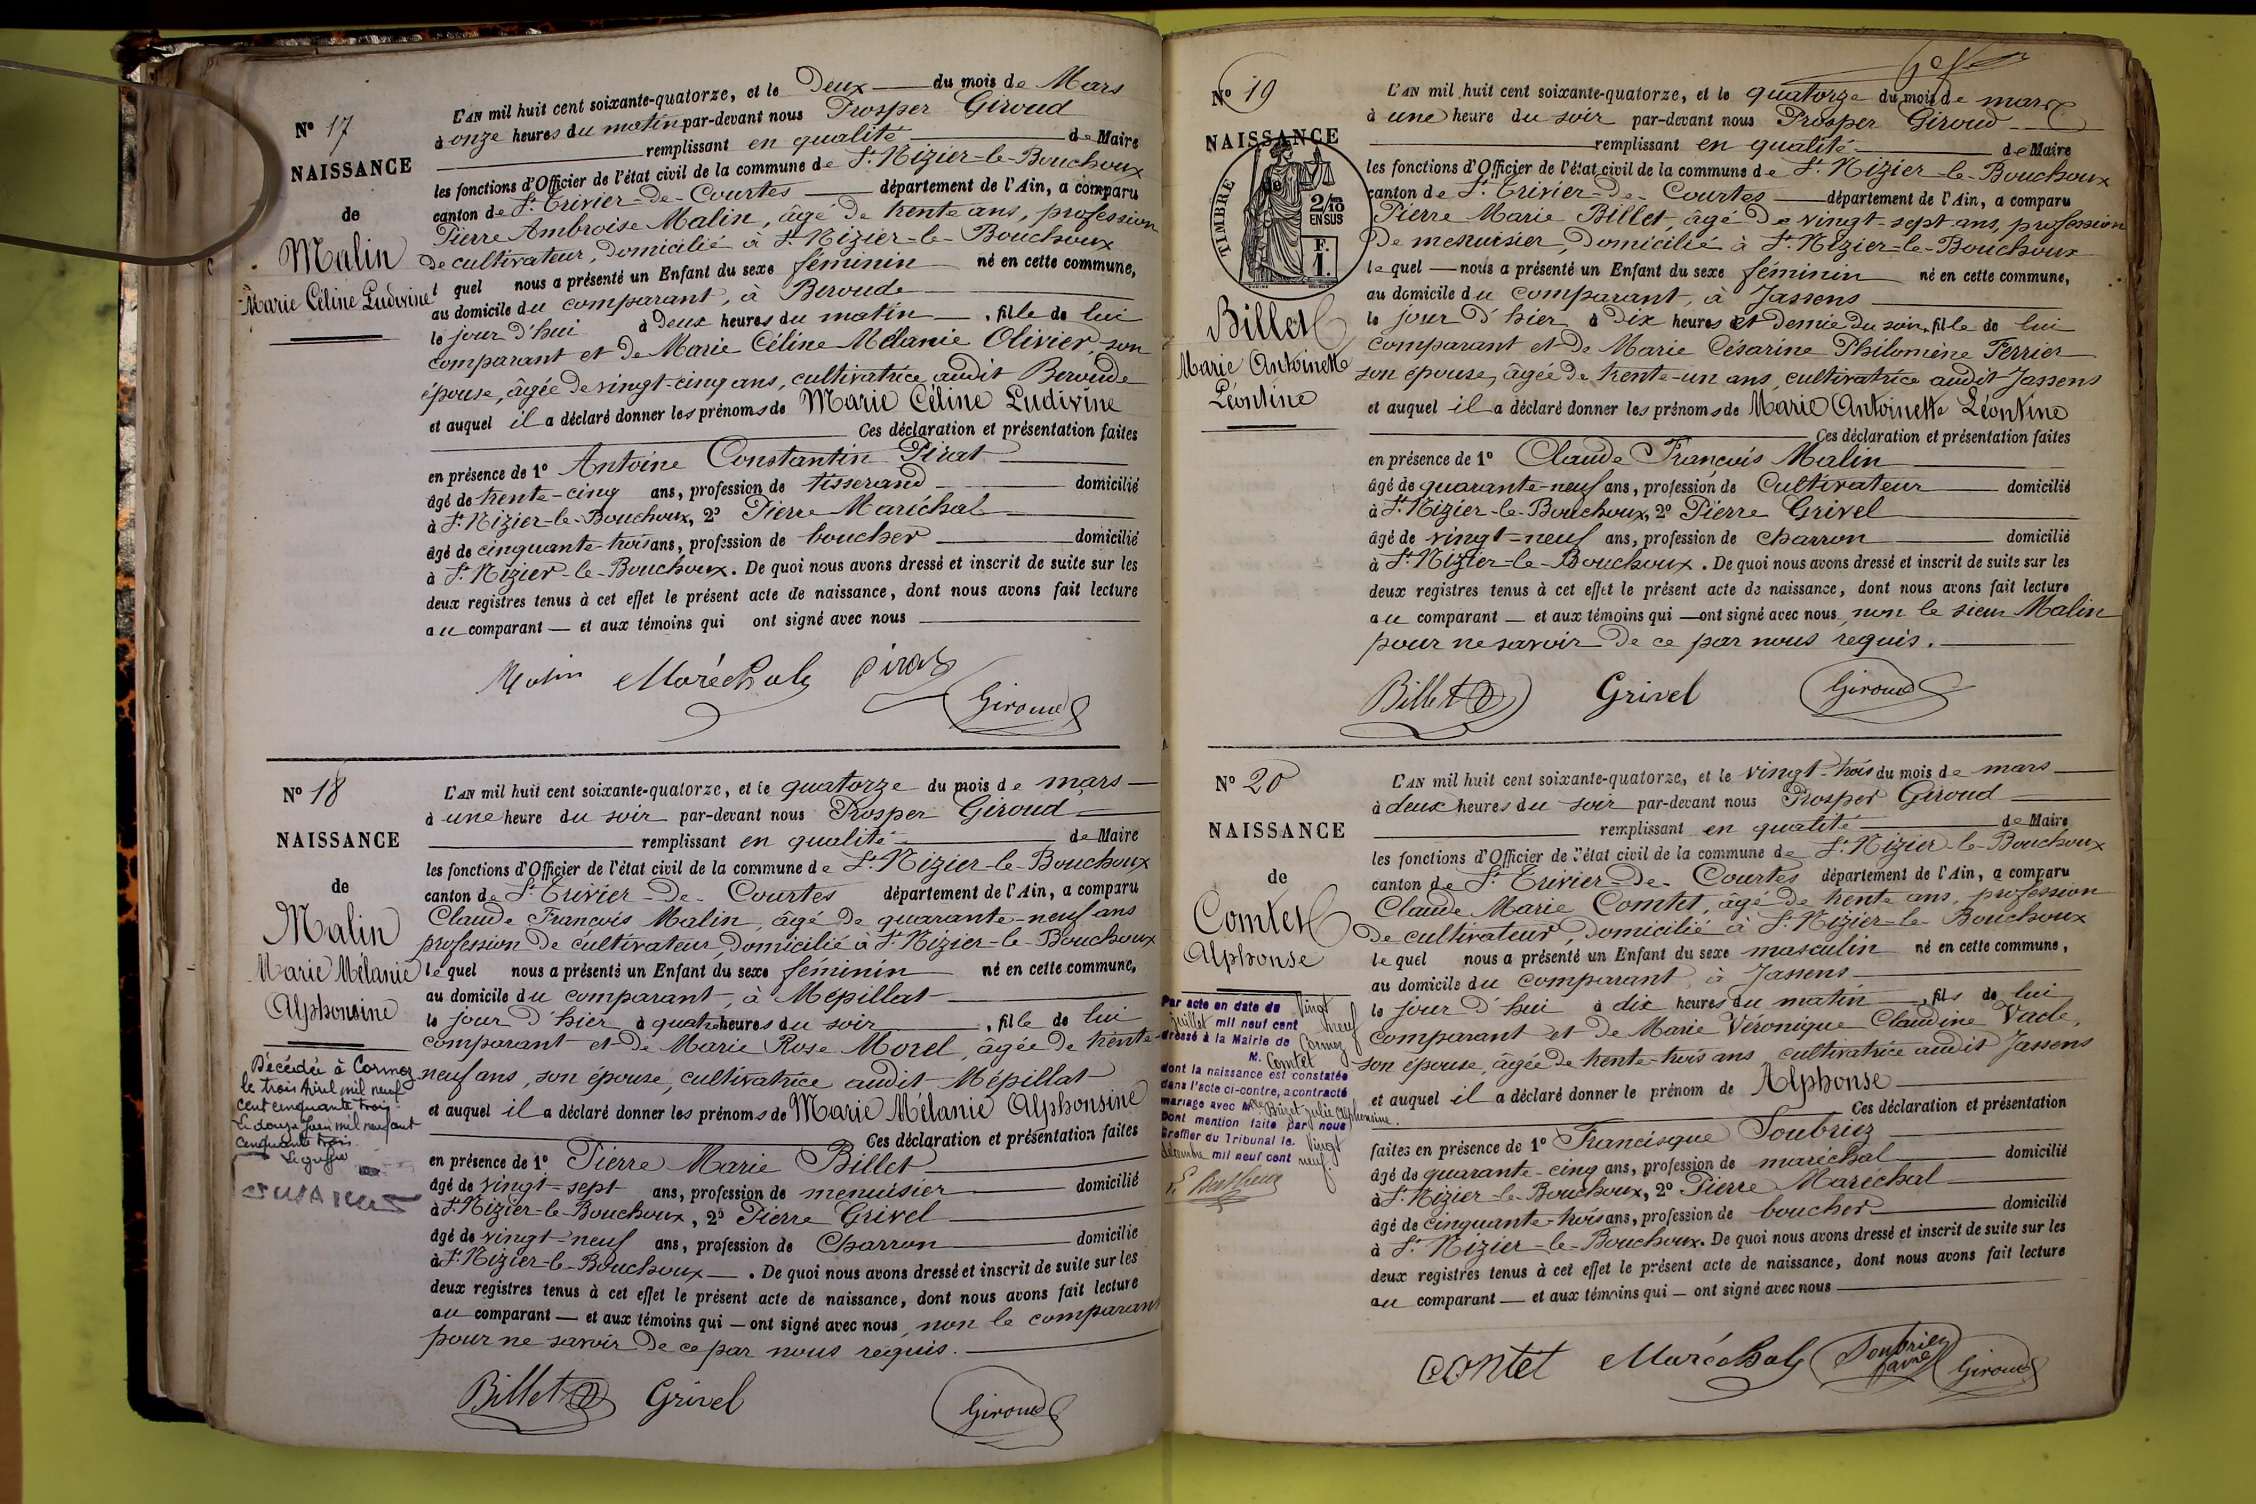 N° 17
NAISSANCE
de
Malin
Marie Céline Ludivine
L'AN mil huit cent soixante-quatorze, et le Deux du mois de Mars
à onze heures du matin par-devant nous Prosper Giroud
remplissant en qualité de Maire
les fonctions d'Officier de l'état civil de la commune de St Nizier-le-Bouchoux
canton de St Trivier-de-Courtes département de l'Ain, a comparu
Pierre Ambroise Malin, âgé de trente ans, profession
de cultivateur, domicilié à St Nizier-le-Bouchoux
l quel nous a présenté un Enfant du sexe féminin né en cette commune,
au domicile du comparant, à Beroude
le jour d'hui à deux heures du matin, fille de lui
comparant et de Marie Céline Mélanie Olivier, son
épouse, âgée de vingt-cinq ans, cultivatrice audit Beroude
et auquel il a déclaré donner les prénoms de Marie Céline Ludivine
Ces déclaration et présentation faites
en présence de 1° Antoine Constantin Pirat
âgé de trente-cinq ans, profession de tisserand domicilié
à St Nizier-le-Bouchoux, 2° Pierre Maréchal
âgé de cinquante-trois ans, profession de boucher domicilié
à St Nizier-le-Bouchoux. De quoi nous avons dressé et inscrit de suite sur les
deux registres tenus à cet effet le présent acte de naissance, dont nous avons fait lecture
au comparant et aux témoins qui ont signé avec nous
Malin Maréchal Pirat
Giroud
N° 18
NAISSANCE
de
Malin
Marie Mélanie
Alphonsine
Décédée à Cormoz
le trois Avril mil neuf
cent cinquante trois.
Le douze juin mil neuf cent
cinquante trois.
Le greffier
L'AN mil huit cent soixante-quatorze, et le quatorze du mois de mars
à une heure du soir par-devant nous Prosper Giroud
remplissant en qualité de Maire
les fonctions d'Officier de l'état civil de la commune de St Nizier-le-Bouchoux
canton de St Trivier-de-Courtes département de l'Ain, a comparu
Claude François Malin, âgé de quarante-neuf ans
profession de cultivateur, domicilié à St Nizier-le-Bouchoux
lequel nous a présenté un Enfant du sexe féminin né en cette commune,
au domicile du comparant, à Mépillat
le jour d'hier à quatre heures du soir, fille de lui
comparant et de Marie Rose Morel, âgée de trente-
neuf ans, son épouse, cultivatrice audit Mépillat
et auquel il a déclaré donner les prénoms de Marie Mélanie Alphonsine
Ces déclaration et présentation faites
en présence de 1° Pierre Marie Billet
âgé de vingt-sept ans, profession de menuisier domicilié
à St Nizier-le-Bouchoux, 2° Pierre Grivel
âgé de vingt-neuf ans, profession de Charron domicilié
à St Nizier-le-Bouchoux. De quoi nous avons dressé et inscrit de suite sur les
deux registres tenus à cet effet le présent acte de naissance, dont nous avons fait lecture
au comparant et aux témoins qui ont signé avec nous, non le comparant
pour ne savoir de ce par nous requis.
Billet Grivel Giroud
N° 19
NAISSANCE
de
TIMBRE
2/10
EN SUS
F.
1.
Billet
Marie Antoinette
Léontine
L'AN mil huit cent soixante-quatorze, et le quatorze du mois de mars
à une heure du soir par-devant nous Prosper Giroud
remplissant en qualité de Maire
les fonctions d'Officier de l'état civil de la commune de St Nizier-le-Bouchoux
canton de St Trivier-de-Courtes département de l'Ain, a comparu
Pierre Marie Billet, âgé de vingt-sept ans, profession
de menuisier, domicilié à St Nizier-le-Bouchoux
lequel nous a présenté un Enfant du sexe féminin né en cette commune,
au domicile du comparant, à Jassens
le jour d'hier à dix heures et demie du soir, fille de lui
comparant et de Marie Césarine Philomène Ferrier
son épouse, âgée de trente-un ans, cultivatrice audit Jassens
et auquel il a déclaré donner les prénoms de Marie Antoinette Léontine
Ces déclaration et présentation faites
en présence de 1° Claude François Malin
âgé de quarante-neuf ans, profession de Cultivateur domicilié
à St Nizier-le-Bouchoux, 2° Pierre Grivel
âgé de vingt-neuf ans, profession de charron domicilié
à St Nizier-le-Bouchoux. De quoi nous avons dressé et inscrit de suite sur les
deux registres tenus à cet effet le présent acte de naissance, dont nous avons fait lecture
au comparant et aux témoins qui ont signé avec nous, non le sieur Malin
pour ne savoir de ce par nous requis.
Billet Grivel Giroud
N° 20
NAISSANCE
de
Comtet
Alphonse
Par acte en date du vingt
juillet mil neuf cent neuf
dressé à la Mairie de Cormoz
M. Comtet
dont la naissance est constatée
dans l'acte ci-contre, a contracté
mariage avec Mlle Buget Julie Alphonsine.
Dont mention faite par nous
Greffier du Tribunal le vingt
décembre mil neuf cent neuf.
L'AN mil huit cent soixante-quatorze, et le vingt-trois du mois de mars
à deux heures du soir par-devant nous Prosper Giroud
remplissant en qualité de Maire
les fonctions d'Officier de l'état civil de la commune de St Nizier-le-Bouchoux
canton de St Trivier-de-Courtes département de l'Ain, a comparu
Claude Marie Comtet, âgé de trente ans, profession
de cultivateur, domicilié à St Nizier-le-Bouchoux
lequel nous a présenté un Enfant du sexe masculin né en cette commune,
au domicile du comparant, à Jassens
le jour d'hui à dix heures du matin, fils de lui
comparant et de Marie Véronique Claudine Vacle,
son épouse, âgée de trente-trois ans, cultivatrice audit Jassens
et auquel il a déclaré donner le prénom de Alphonse
Ces déclaration et présentation
faites en présence de 1° Francisque Soubriez
âgé de quarante-cinq ans, profession de maréchal domicilié
à St Nizier-le-Bouchoux, 2° Pierre Maréchal
âgé de cinquante-trois ans, profession de boucher domicilié
à St Nizier-le-Bouchoux. De quoi nous avons dressé et inscrit de suite sur les
deux registres tenus à cet effet le présent acte de naissance, dont nous avons fait lecture
au comparant et aux témoins qui ont signé avec nous
contet Maréchal Soubriez Giroud